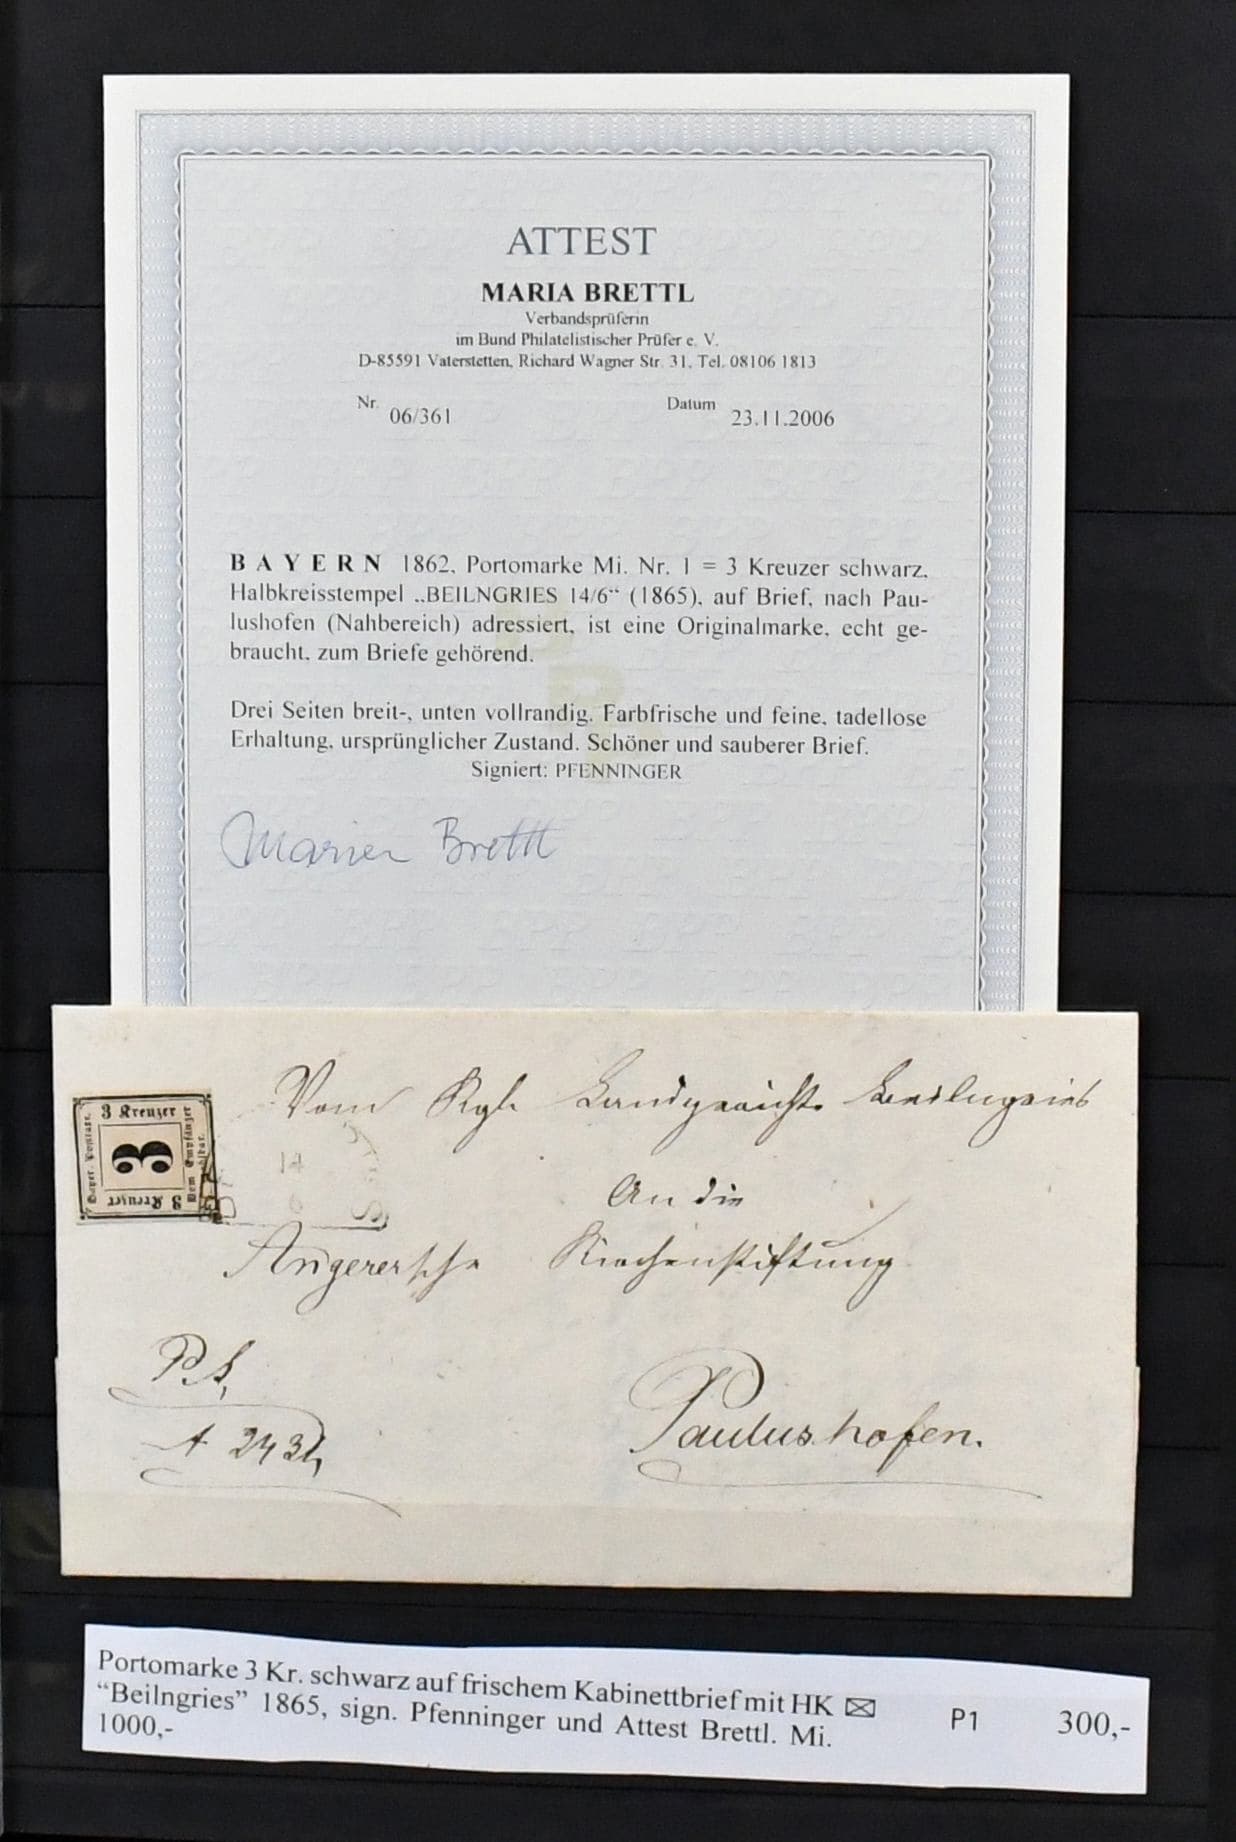 ATTEST
MARIA BRETTL
Verbandsprüferin
im Bund Philatelistischer Prüfer e. V.
D-85591 Vaterstetten, Richard Wagner Str. 31, Tel. 08106 1813
Nr. 06/361 Datum 23.11.2006
BAYERN 1862, Portomarke Mi. Nr. 1 = 3 Kreuzer schwarz,
Halbkreisstempel „BEILNGRIES 14/6“ (1865), auf Brief, nach Pau-
lushofen (Nahbereich) adressiert, ist eine Originalmarke, echt ge-
braucht, zum Briefe gehörend.
Drei Seiten breit-, unten vollrandig. Farbfrische und feine, tadellose
Erhaltung, ursprünglicher Zustand. Schöner und sauberer Brief.
Signiert: PFENNINGER
Maria Brettl
Vom Kgl. Landgericht Beilngries
3 Kreuzer
Bayer. Posttaxe.
3
Dem Empfänger
zahlbar.
3 Kreuzer
14
6
An die
Angerersche Kirchenstiftung
P.S.
Paulushofen.
Portomarke 3 Kr. schwarz auf frischem Kabinettbrief mit HK
“Beilngries” 1865, sign. Pfenninger und Attest Brettl. Mi.
1000,-
P1 300,-